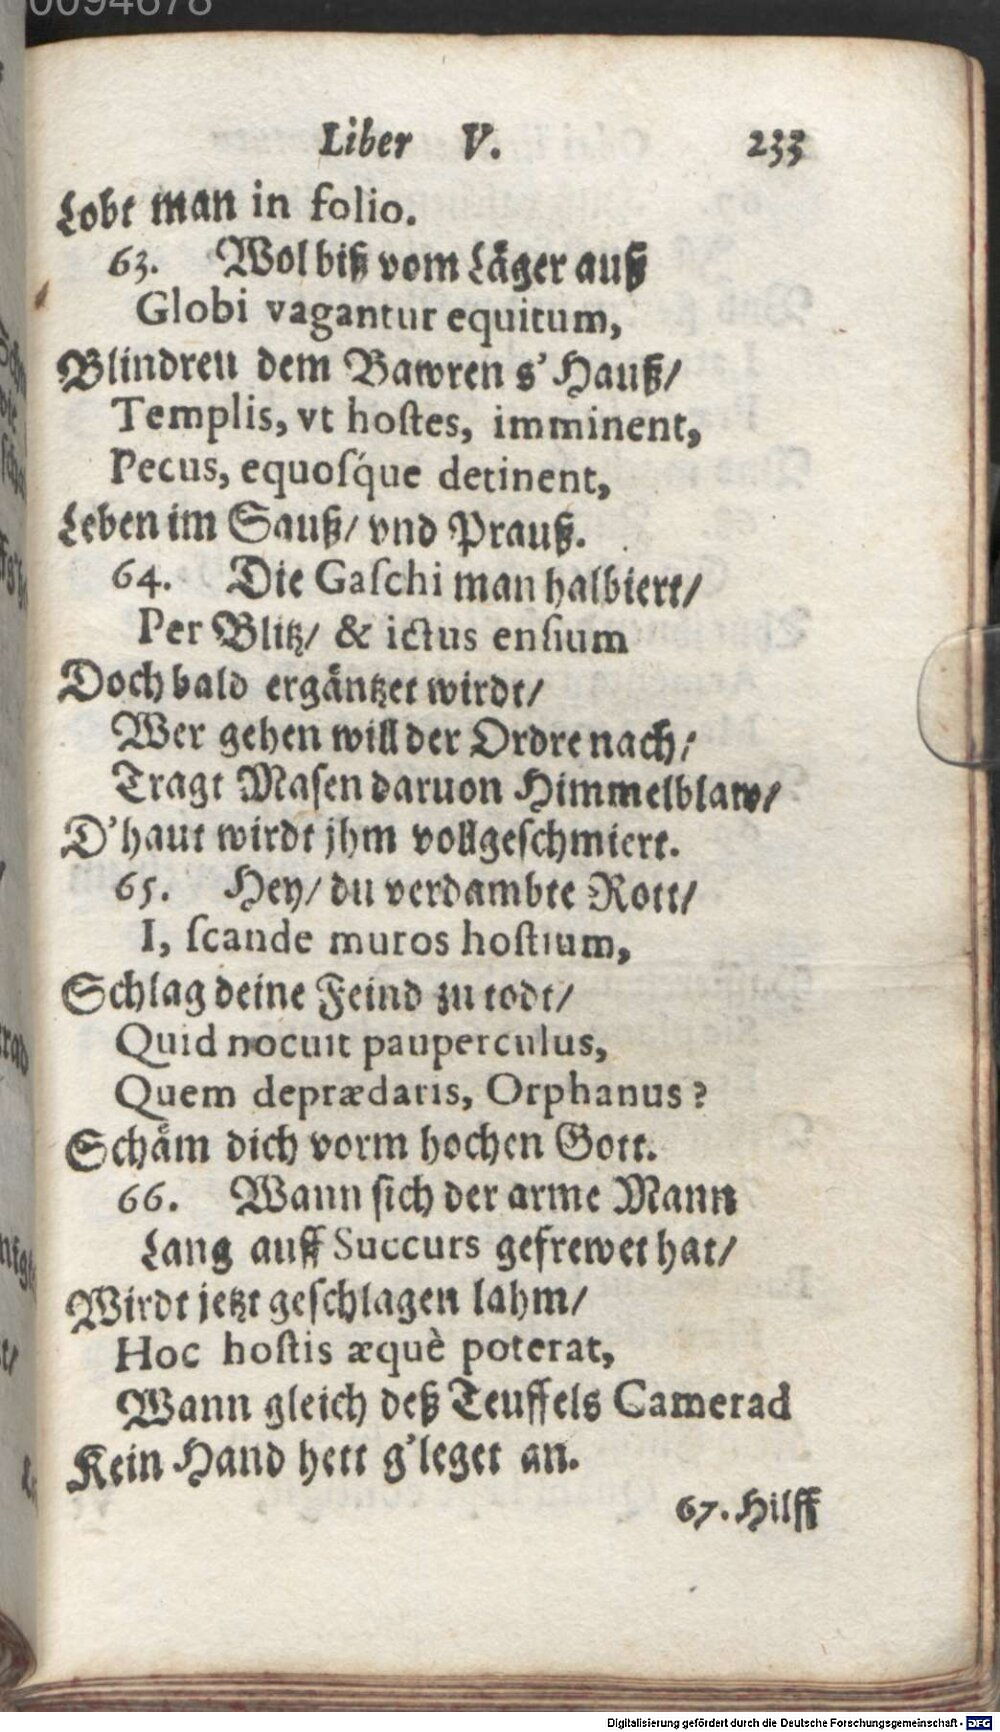 00094678
Liber V. 233
Lobt man in folio.
63. Wol biß vom Läger auß
Globi vagantur equitum,
Blindreu dem Bawren s' Hauß/
Templis, vt hoſtes, imminent,
Pecus, equoſq́ue detinent,
Leben im Sauß/ vnd Prauß.
64. Die Gaſchi man halbiert/
Per Blitz/ & ictus enſium
Doch bald ergäntzet wirdt/
Wer gehen will der Ordre nach/
Tragt Maſen daruon Himmelblaw/
D'haut wirdt jhm vollgeſchmiert.
65. Hey/ du verdambte Rott/
I, ſcande muros hoſtium,
Schlag deine Feind zu todt/
Quid nocuit pauperculus,
Quem deprædaris, Orphanus?
Schäm dich vorm hochen Gott.
66. Wann ſich der arme Mann
Lang auff Succurs gefrewet hat/
Wirdt jetzt geſchlagen lahm/
Hoc hoſtis æquè poterat,
Wann gleich deß Teuffels Camerad
Kein Hand hett g'leget an.
67. Hilff
Digitalisierung gefördert durch die Deutsche Forschungsgemeinschaft - DFG